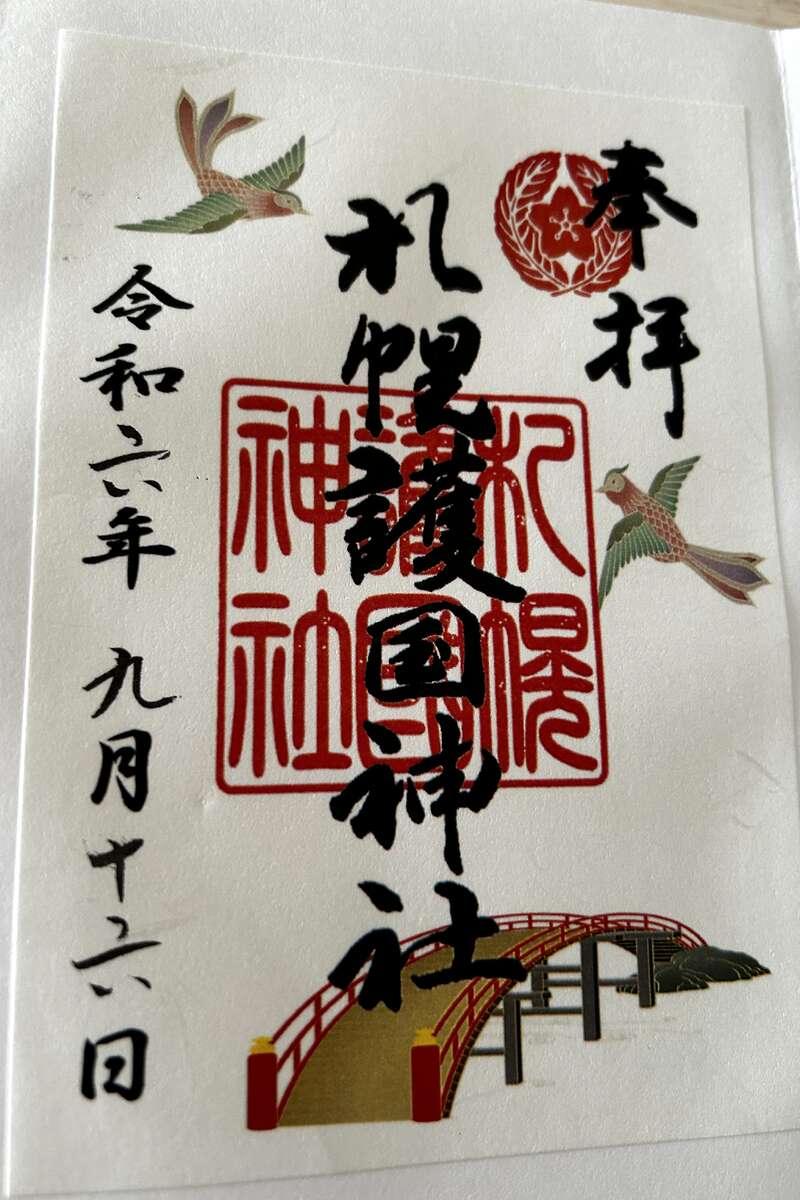 奉拝
札幌護国神社
札幌
護國
神社
令和六年 九月十六日